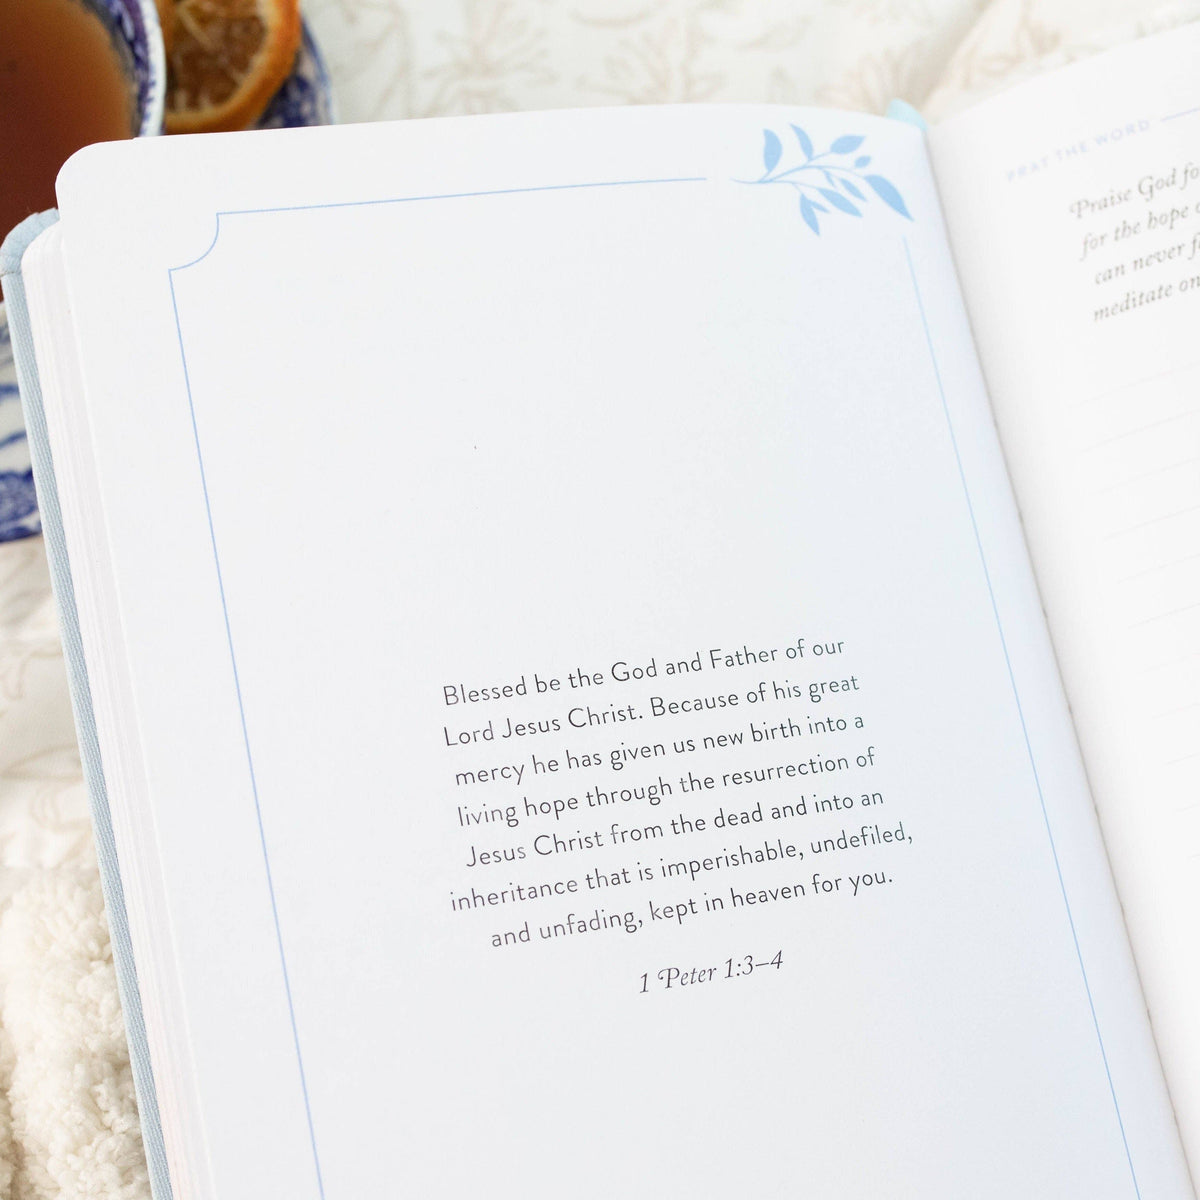 Blessed be the God and Father of our
Lord Jesus Christ. Because of his great
mercy he has given us new birth into a
living hope through the resurrection of
Jesus Christ from the dead and into an
inheritance that is imperishable, undefiled,
and unfading, kept in heaven for you.
1 Peter 1:3–4
PRAY THE WORD
Praise God fo
for the hope
can never f
meditate on